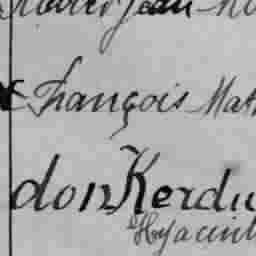 Jean
François Mat
don Kerdu
Hyacint